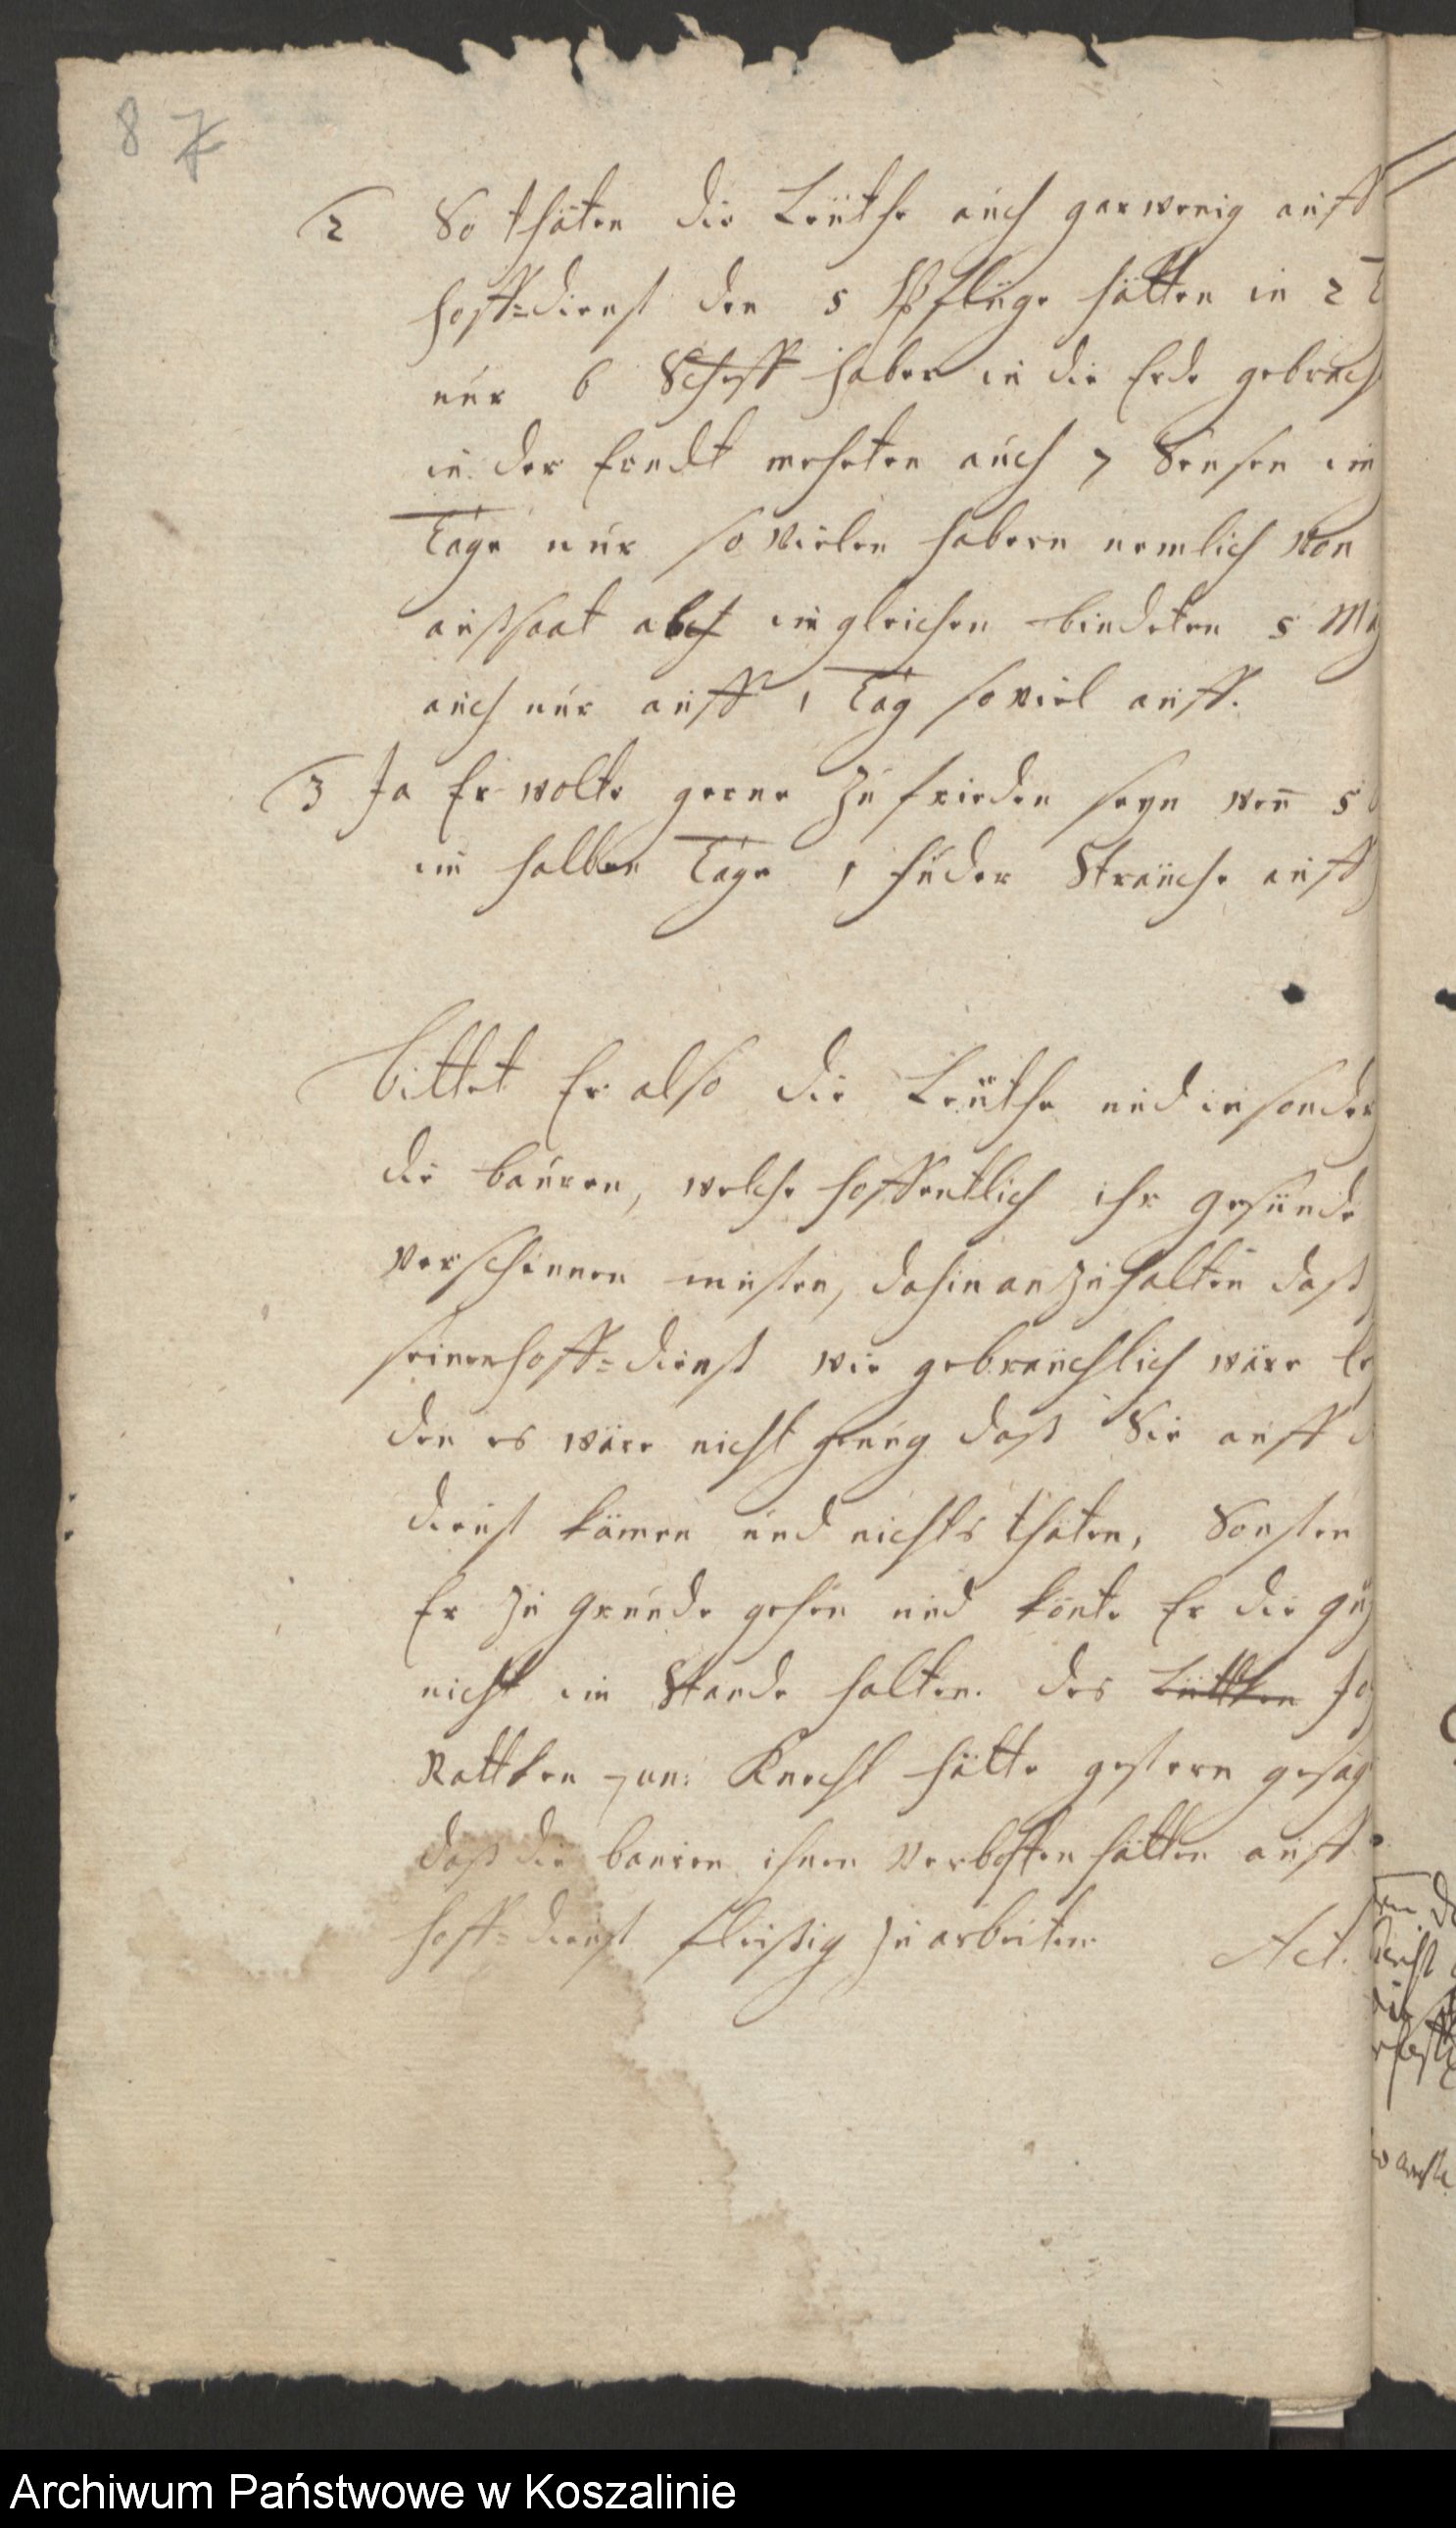 8 7
2 So thäten die Leüthe auch gar wenig auff
hoff=dienst den 5 Pflüge hätten in 2 T
nur 6 Scheff haber in die Erde gebrach
in der Erndt meheten auch 7 Sensen im
Tage nur so vielen habern nemlich von
außsaat ab ingleichen bindeten 5 M
auch nur auff 1 Tag soviel auff.
3 Ja Er wolte gerne zu frieden seyn weñ 5
im halben Tage 1 fuder Sträuche auff
bittet Er also die Leüthe und insonder
die bauren, welche hoffentlich ihr gesinde
musten, dahin anzuhalten daß
seinen hoff=dienst wie gebräuchlich wäre
den es wäre nicht genug daß Sie auff d
dienst kämen und nichts thäten, Sonsten
Er zu grunde gehen und könte Er die gü
nicht im Stande halten. des Lüttken Jo
Rattken Knecht hätte gestern gesag
daß die bauren ihnen verbohten hätten auff
hoff=dienst fleißig zu arbeiten Act.
Archiwum Państwowe w Koszalinie